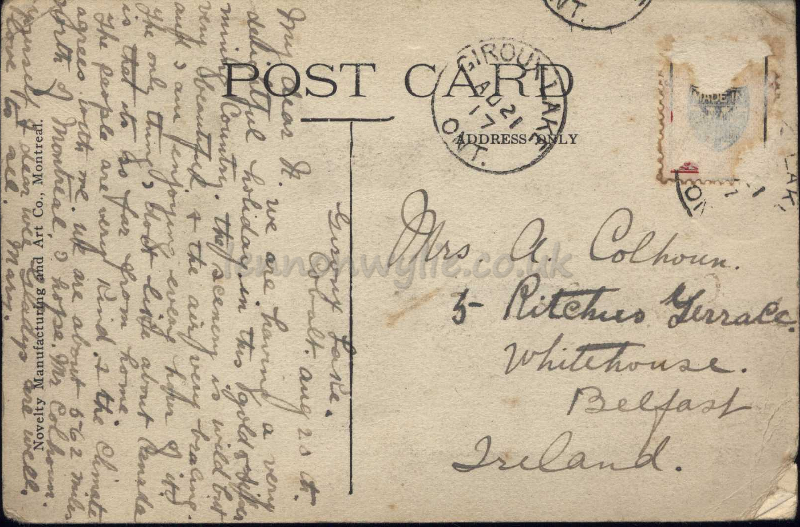 POST CARD
ADDRESS ONLY
GIROUX LAKE
AU 21
17
ONT.
ONT.
LAKE
MADE IN
Giroux Lake.
Cobalt. Aug 20th.
My dear A. we are having a very
delightful holiday in this gold & silver
mining Country. The scenery is wild but
very beautiful & the air very bracing.
and I am enjoying every hour of it.
The only thing I dont like about Canada
is that its so far from home.
The people are very kind & the Climate
agrees with me. we are about 562 miles
north of Montreal. I hope Mr Colhoun.
yourself & dear wee Gladys are well.
Love to all. Mary.
Mrs. A. Colhoun.
5 Ritchies Terrace.
Whitehouse.
Belfast
Ireland.
Novelty Manufacturing and Art Co., Montreal.
lennonwylie.co.uk